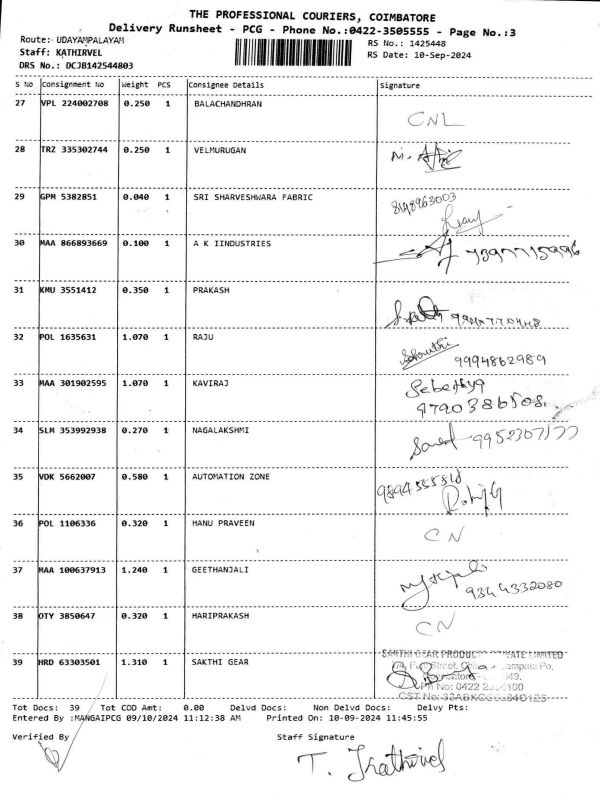 THE PROFESSIONAL COURIERS, COIMBATORE
Delivery Runsheet - PCG - Phone No.:0422-3505555 - Page No.:3
Route: UDAYAMPALAYAM RS No.: 1425448
Staff: KATHIRVEL RS Date: 10-Sep-2024
DRS No.: DCJB142544803
S No Consignment No Weight PCS Consignee Details Signature
27 VPL 224002708 0.250 1 BALACHANDHRAN CNL
28 TRZ 335302744 0.250 1 VELMURUGAN
29 GPM 5382851 0.040 1 SRI SHARVESHWARA FABRIC 8148963003
30 MAA 866893669 0.100 1 A K IINDUSTRIES
31 KMU 3551412 0.350 1 PRAKASH
32 POL 1635631 1.070 1 RAJU 9994862989
33 MAA 301902595 1.070 1 KAVIRAJ
34 SLM 353992938 0.270 1 NAGALAKSHMI
35 VDK 5662007 0.580 1 AUTOMATION ZONE
36 POL 1106336 0.320 1 HANU PRAVEEN CN
37 MAA 100637913 1.240 1 GEETHANJALI 9344332080
38 OTY 3850647 0.320 1 HARIPRAKASH CN
39 HRD 63303501 1.310 1 SAKTHI GEAR SAKTHI GEAR PRODUCT
Tot Docs: 39 Tot COD Amt: 0.00 Delvd Docs: Non Delvd Docs: Delvy Pts:
Entered By :MANGAIPCG 09/10/2024 11:12:38 AM Printed On: 10-09-2024 11:45:55
Verified By Staff Signature
T. Kathirvel